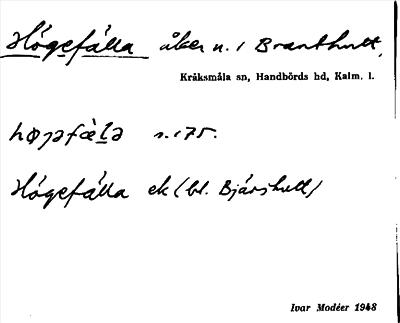 Högefälla åker n. i Branthult,
Kråksmåla sn, Handbörds hd, Kalm. l.
s. 175.
Högefälla ek (bl. Bjärshult)
Ivar Modéer 1948